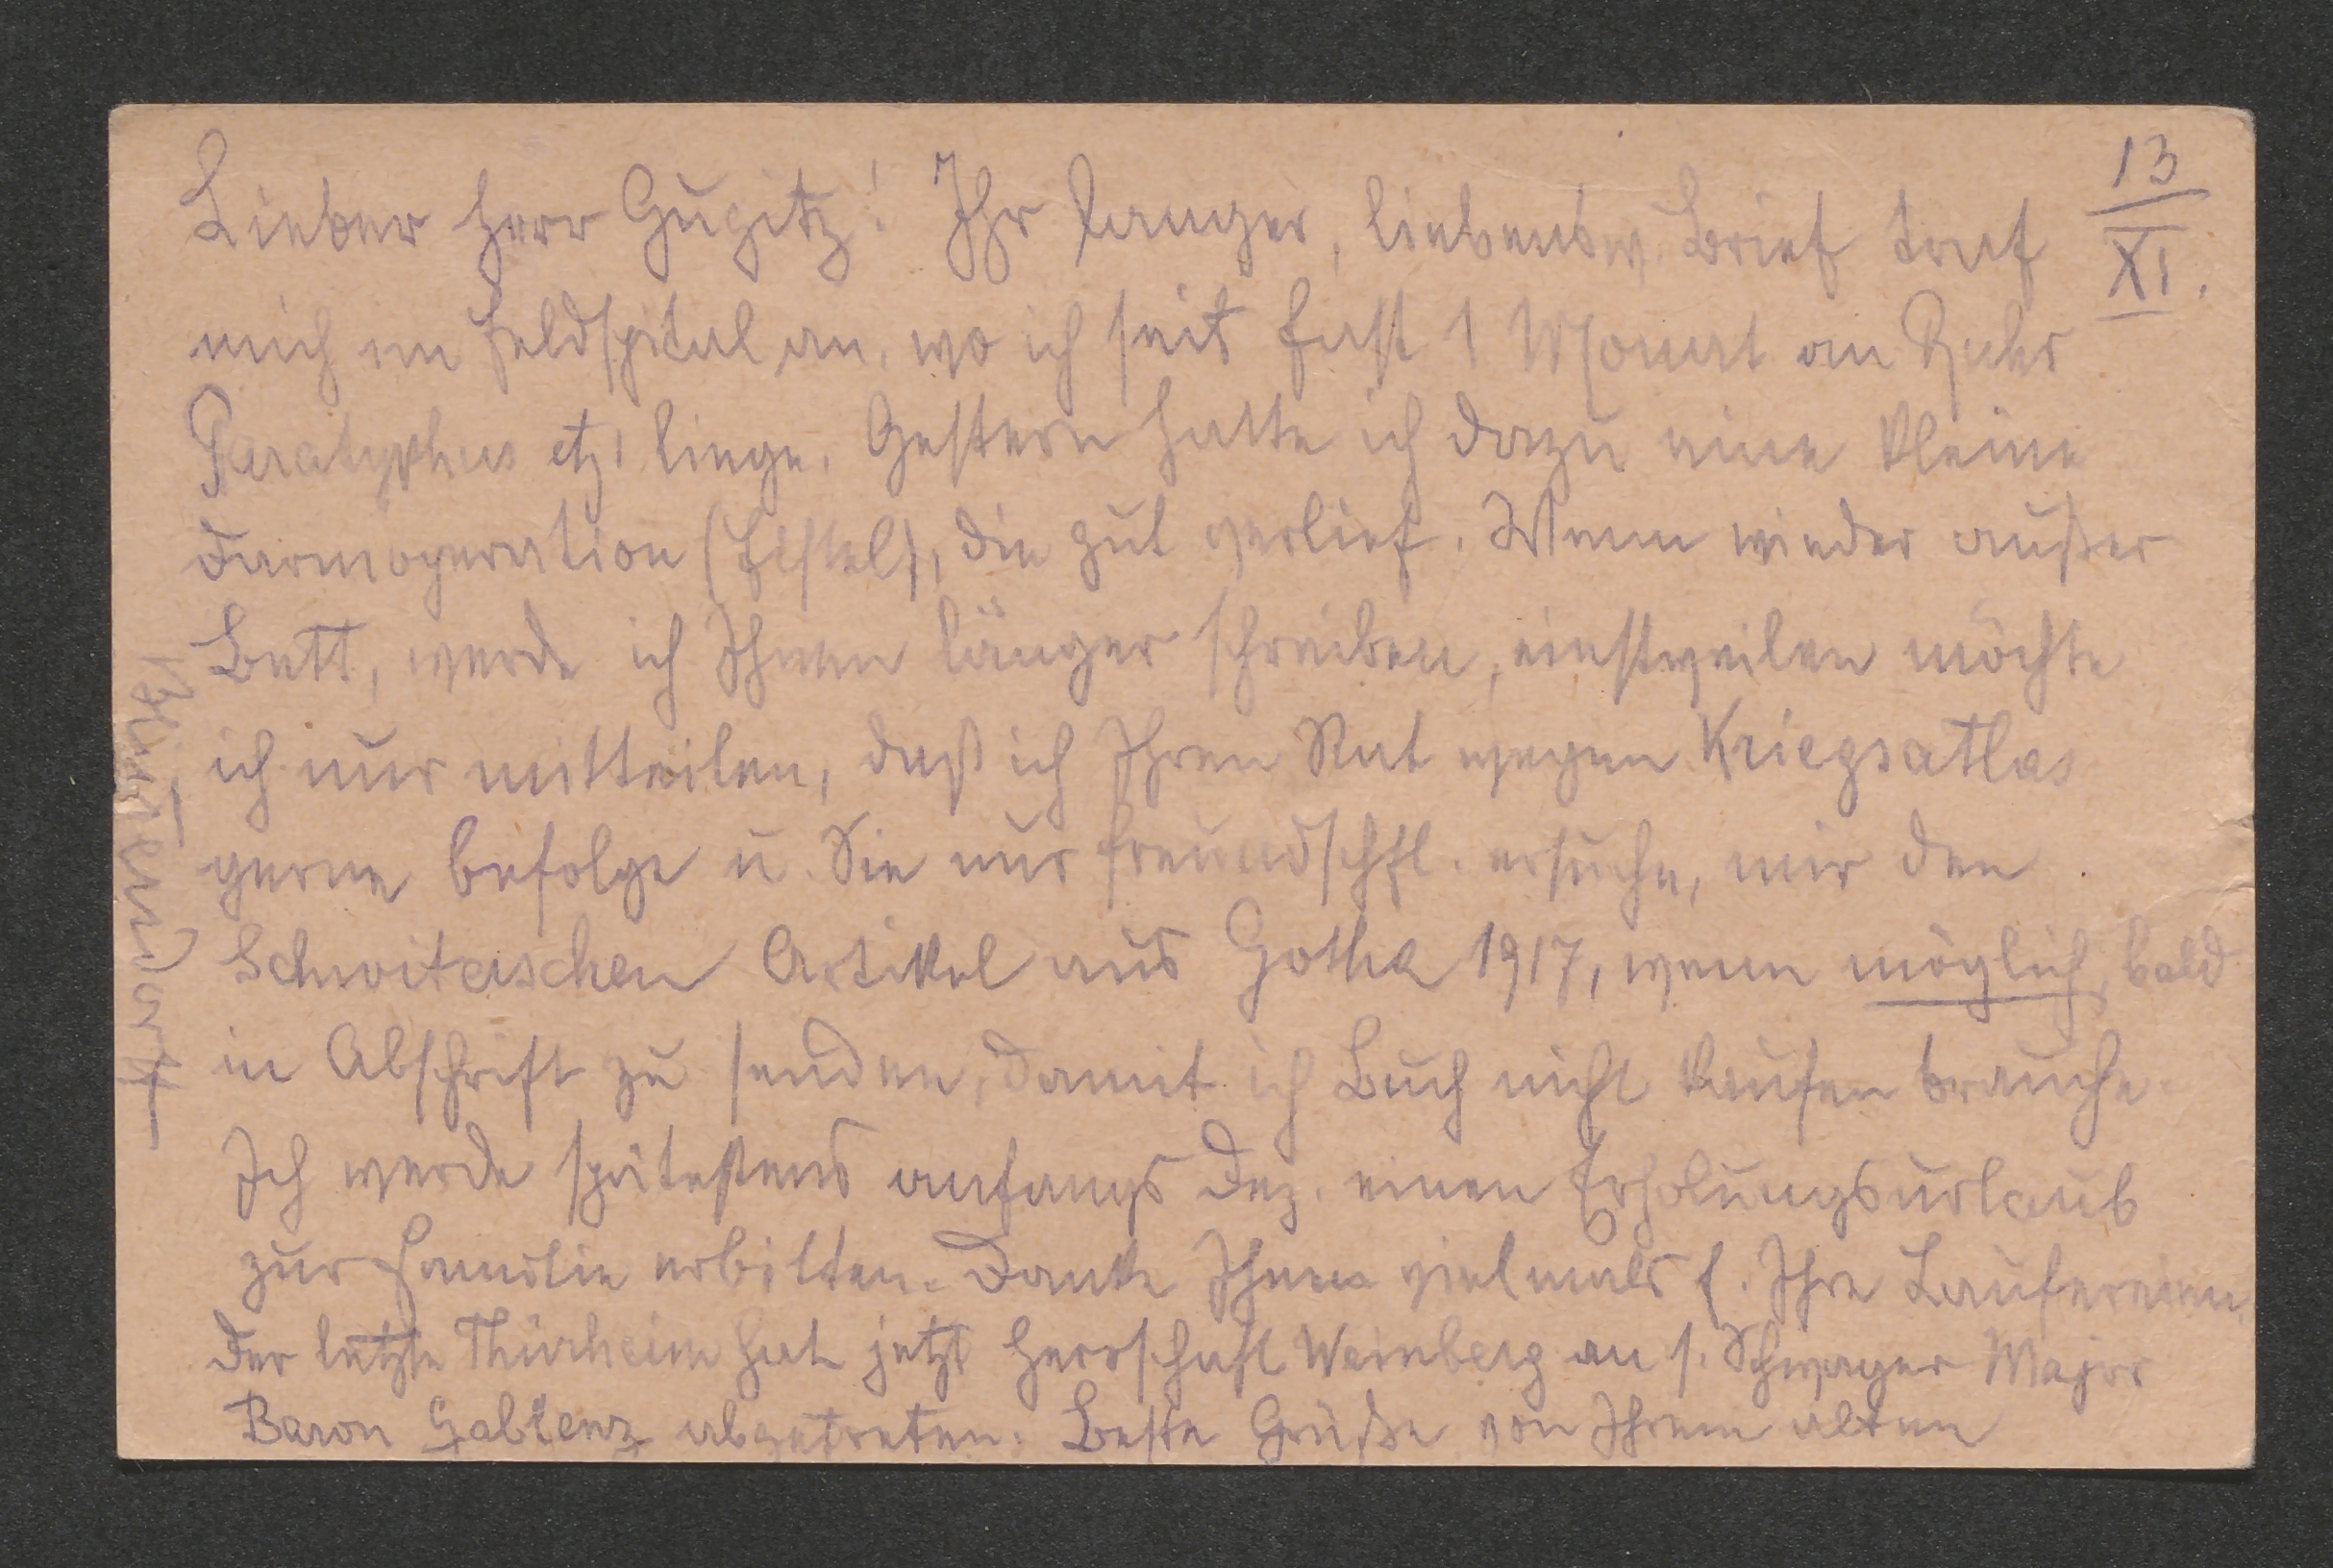 13
XI.
Lieber Herr Gugitz! Ihr langer, liebensw. Brief traf
mich im Feldspital an, wo ich seit fast 1 Monat an Ruhr
Paratyphus etz. liege. Gestern hatte ich dazu eine kleine
Darmoperation (Fistel), die gut verlief. Wenn wieder außer
Bett, werde ich Ihnen länger schreiben, einstweilen möchte
ich nur mitteilen, daß ich Ihren Rat wegen Kriegsatlas
gerne befolge u. Sie nur freundschftl. ersuche, mir den
Artikel aus Gotha 1917, wenn möglich, bald
in Abschrift zu senden, damit ich Buch nicht kaufen brauche.
Ich werde spätestens anfangs Dez. einen Erholungsurlaub
zur Familie erbitten. Danke Ihnen vielmals f. Ihre Laufereien.
Der letzte Thürheim hat jetzt Herrschaft Weinberg an s. Schwager Major
Baron Gablenz abgetreten. Beste Grüße von Ihrem alten